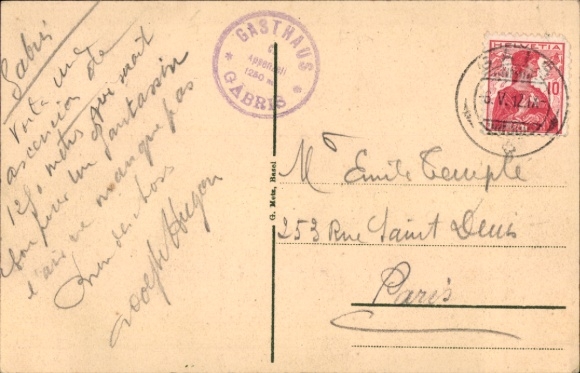 Gabris
Voila une
ascension de
1250 mètres qui n'est
bon pour un fantassin
l'air ne manque pas
bien des choses
Adolph Hugon
GASTHAUS
APPENZELL
1250 M
* GABRIS *
G. Metz, Basel
HELVETIA
10
V.12.IX
Mr Emile Temple
253 Rue Saint Denis
Paris